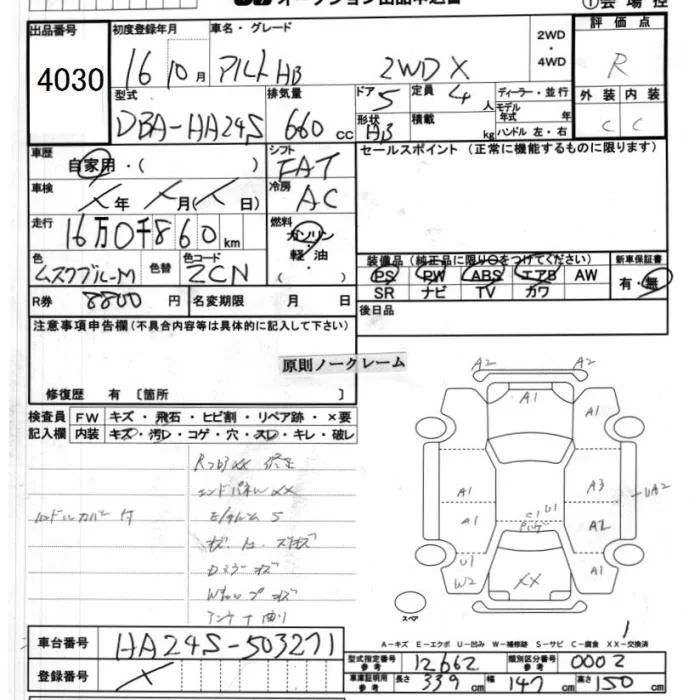 出品番号
4030
初度登録年月
16 10月
車名・グレード
アルト HB 2WD X
2WD
・
4WD
評価点
R
型式
DBA-HA24S
排気量
660 cc
ドア 5
形状 HB
定員 4 人
積載 kg
ディーラー・並行
モデル年式 年
ハンドル 左・右
外装
C
内装
C
車歴
自家用・( )
シフト
FAT
セールスポイント (正常に機能するものに限ります)
車検
年 月( 日)
冷房
AC
走行
16万0千860km
燃料
ガソリン
・
軽油
色
色替
色コード
ZCN
装備品(純正品に限り○をつけてください)
PS PW ABS エアB AW
SR ナビ TV カワ
新車保証書
有・無
R券 8800円
名変期限 月 日
後日品
注意事項申告欄(不具合内容等は具体的に記入して下さい)
原則ノークレーム
修復歴 有〔箇所 〕
検査員
記入欄
FW キズ・飛石・ヒビ割・リペア跡・×要
内装 キズ・汚レ・コゲ・穴・スレ・キレ・破レ
エンドパネルXX
A2 A2
A1
A1
A1 A3 UA2
A1 C1 U1 A2
U1 A1
W2 XX
スペア
A-キズ E-エクボ U-凹み W-補修跡 S-サビ C-腐食 XX-交換済
車台番号
HA24S-503271
登録番号
型式指定番号
参考
12662
類別区分番号
参考
0002
車庫証明用
参考
長さ 339cm 幅 147cm 高さ 150cm